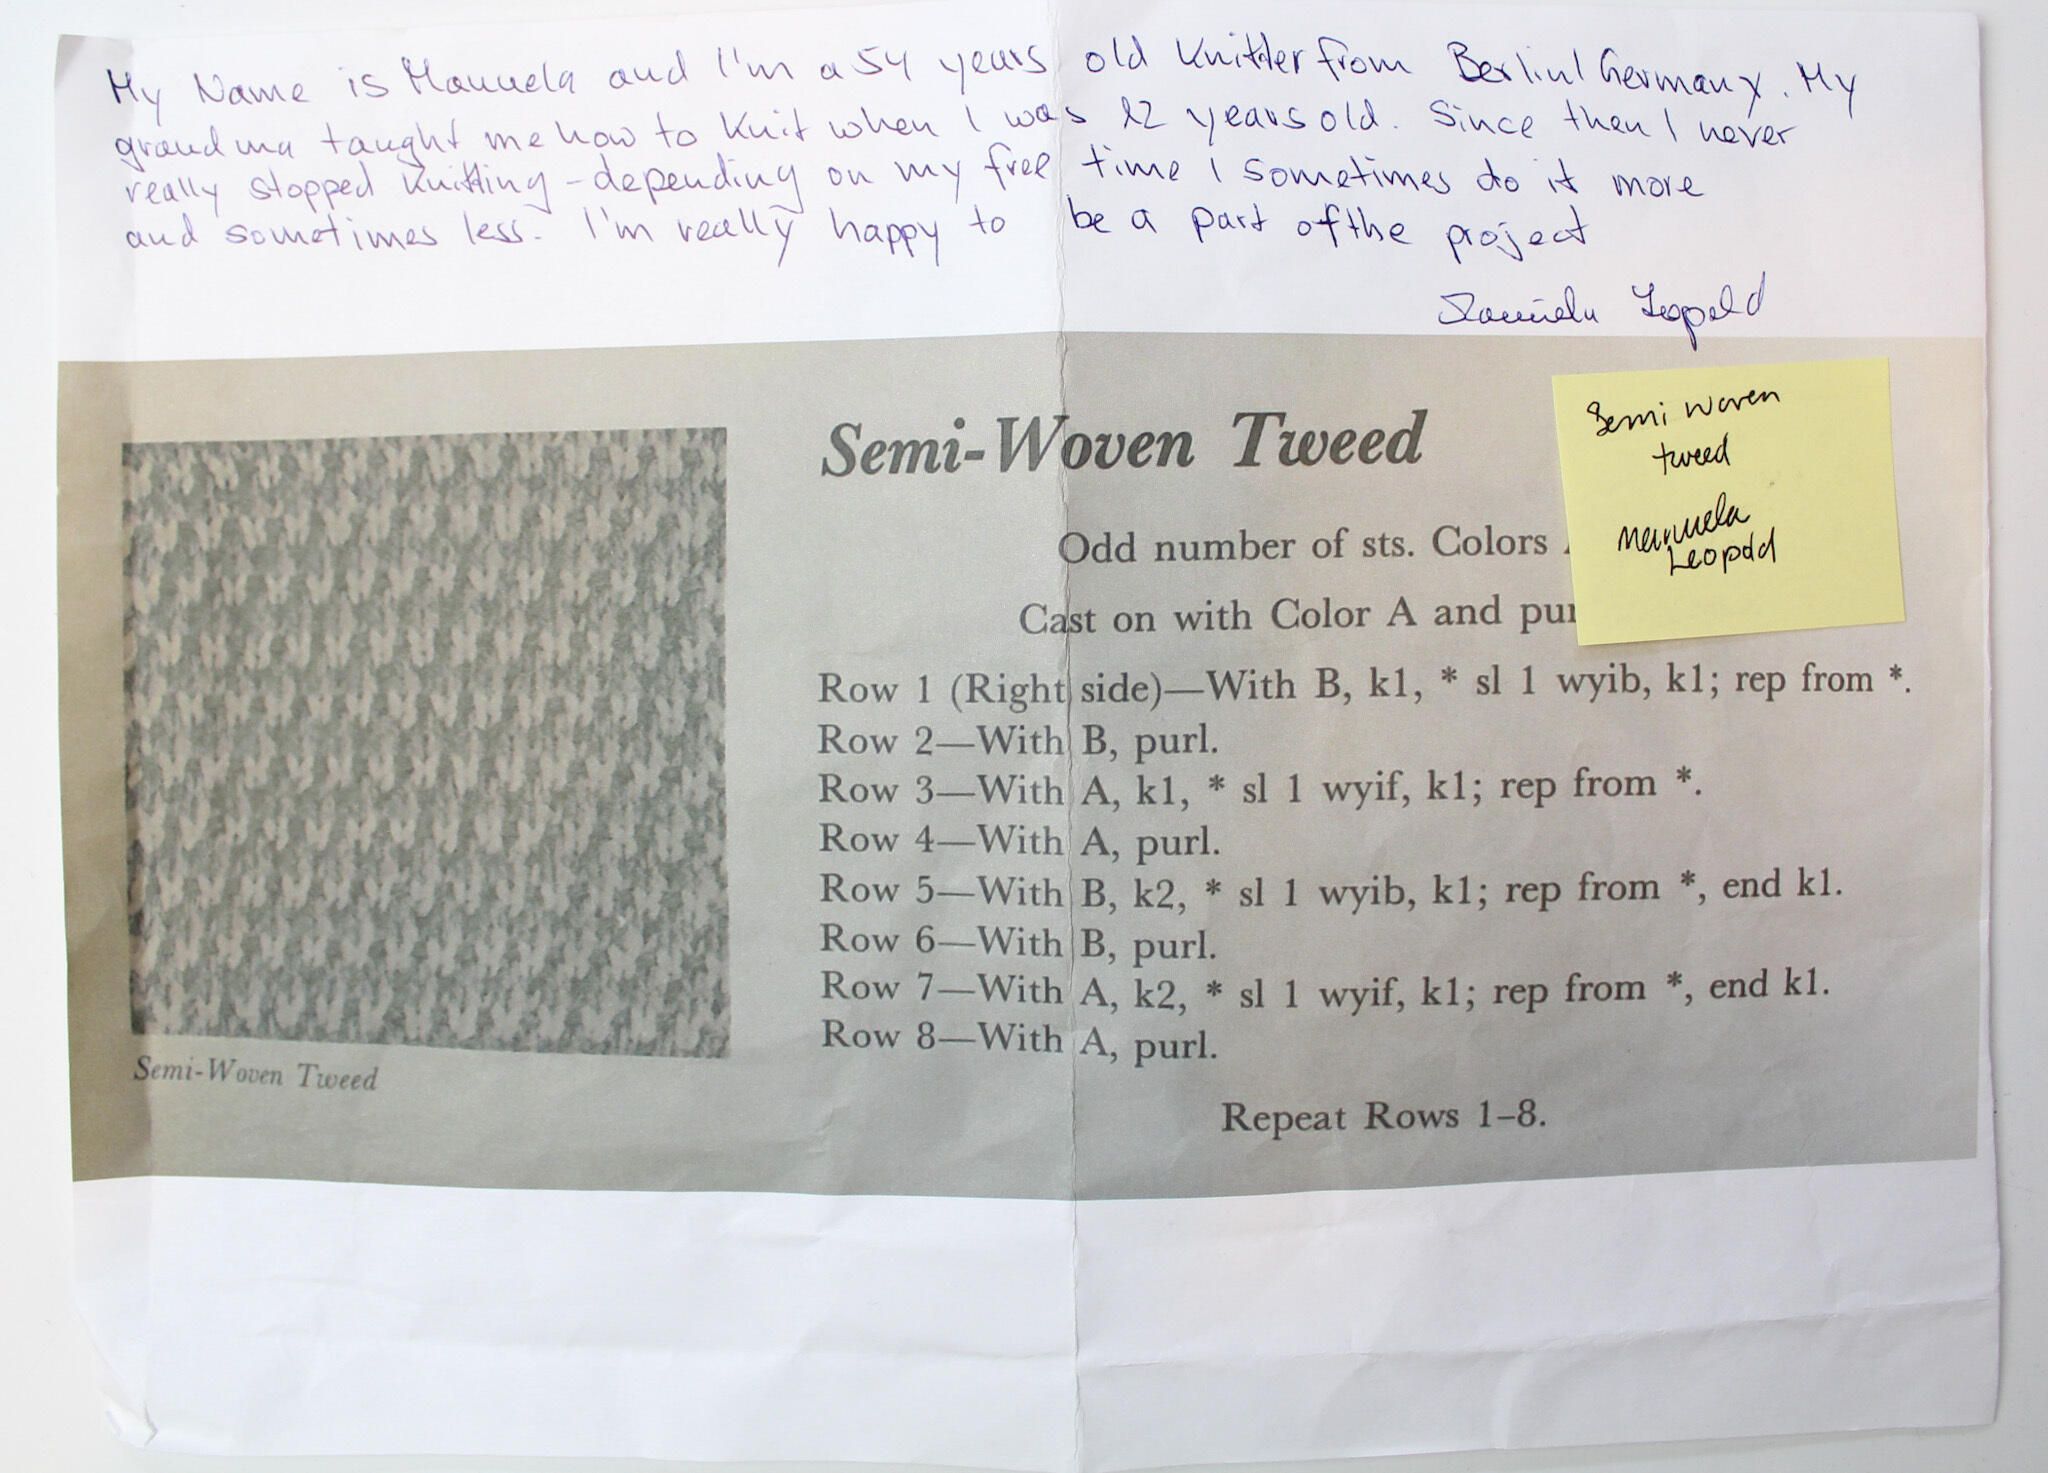 My Name is Manuela and I'm a 54 years old knitter from Berlin/Germany. My
grandma taught me how to knit when I was 12 years old. Since then I never
really stopped knitting - depending on my free time I sometimes do it more
and sometimes less. I'm really happy to be a part of the project
Manuela Leopold
Semi woven
tweed
Manuela
Leopold
Semi-Woven Tweed
Odd number of sts. Colors
Cast on with Color A and
Row 1 (Right side)—With B, k1, * sl 1 wyib, k1; rep from *.
Row 2—With B, purl.
Row 3—With A, k1, * sl 1 wyif, k1; rep from *.
Row 4—With A, purl.
Row 5—With B, k2, * sl 1 wyib, k1; rep from *, end k1.
Row 6—With B, purl.
Row 7—With A, k2, * sl 1 wyif, k1; rep from *, end k1.
Row 8—With A, purl.
Repeat Rows 1–8.
Semi-Woven Tweed